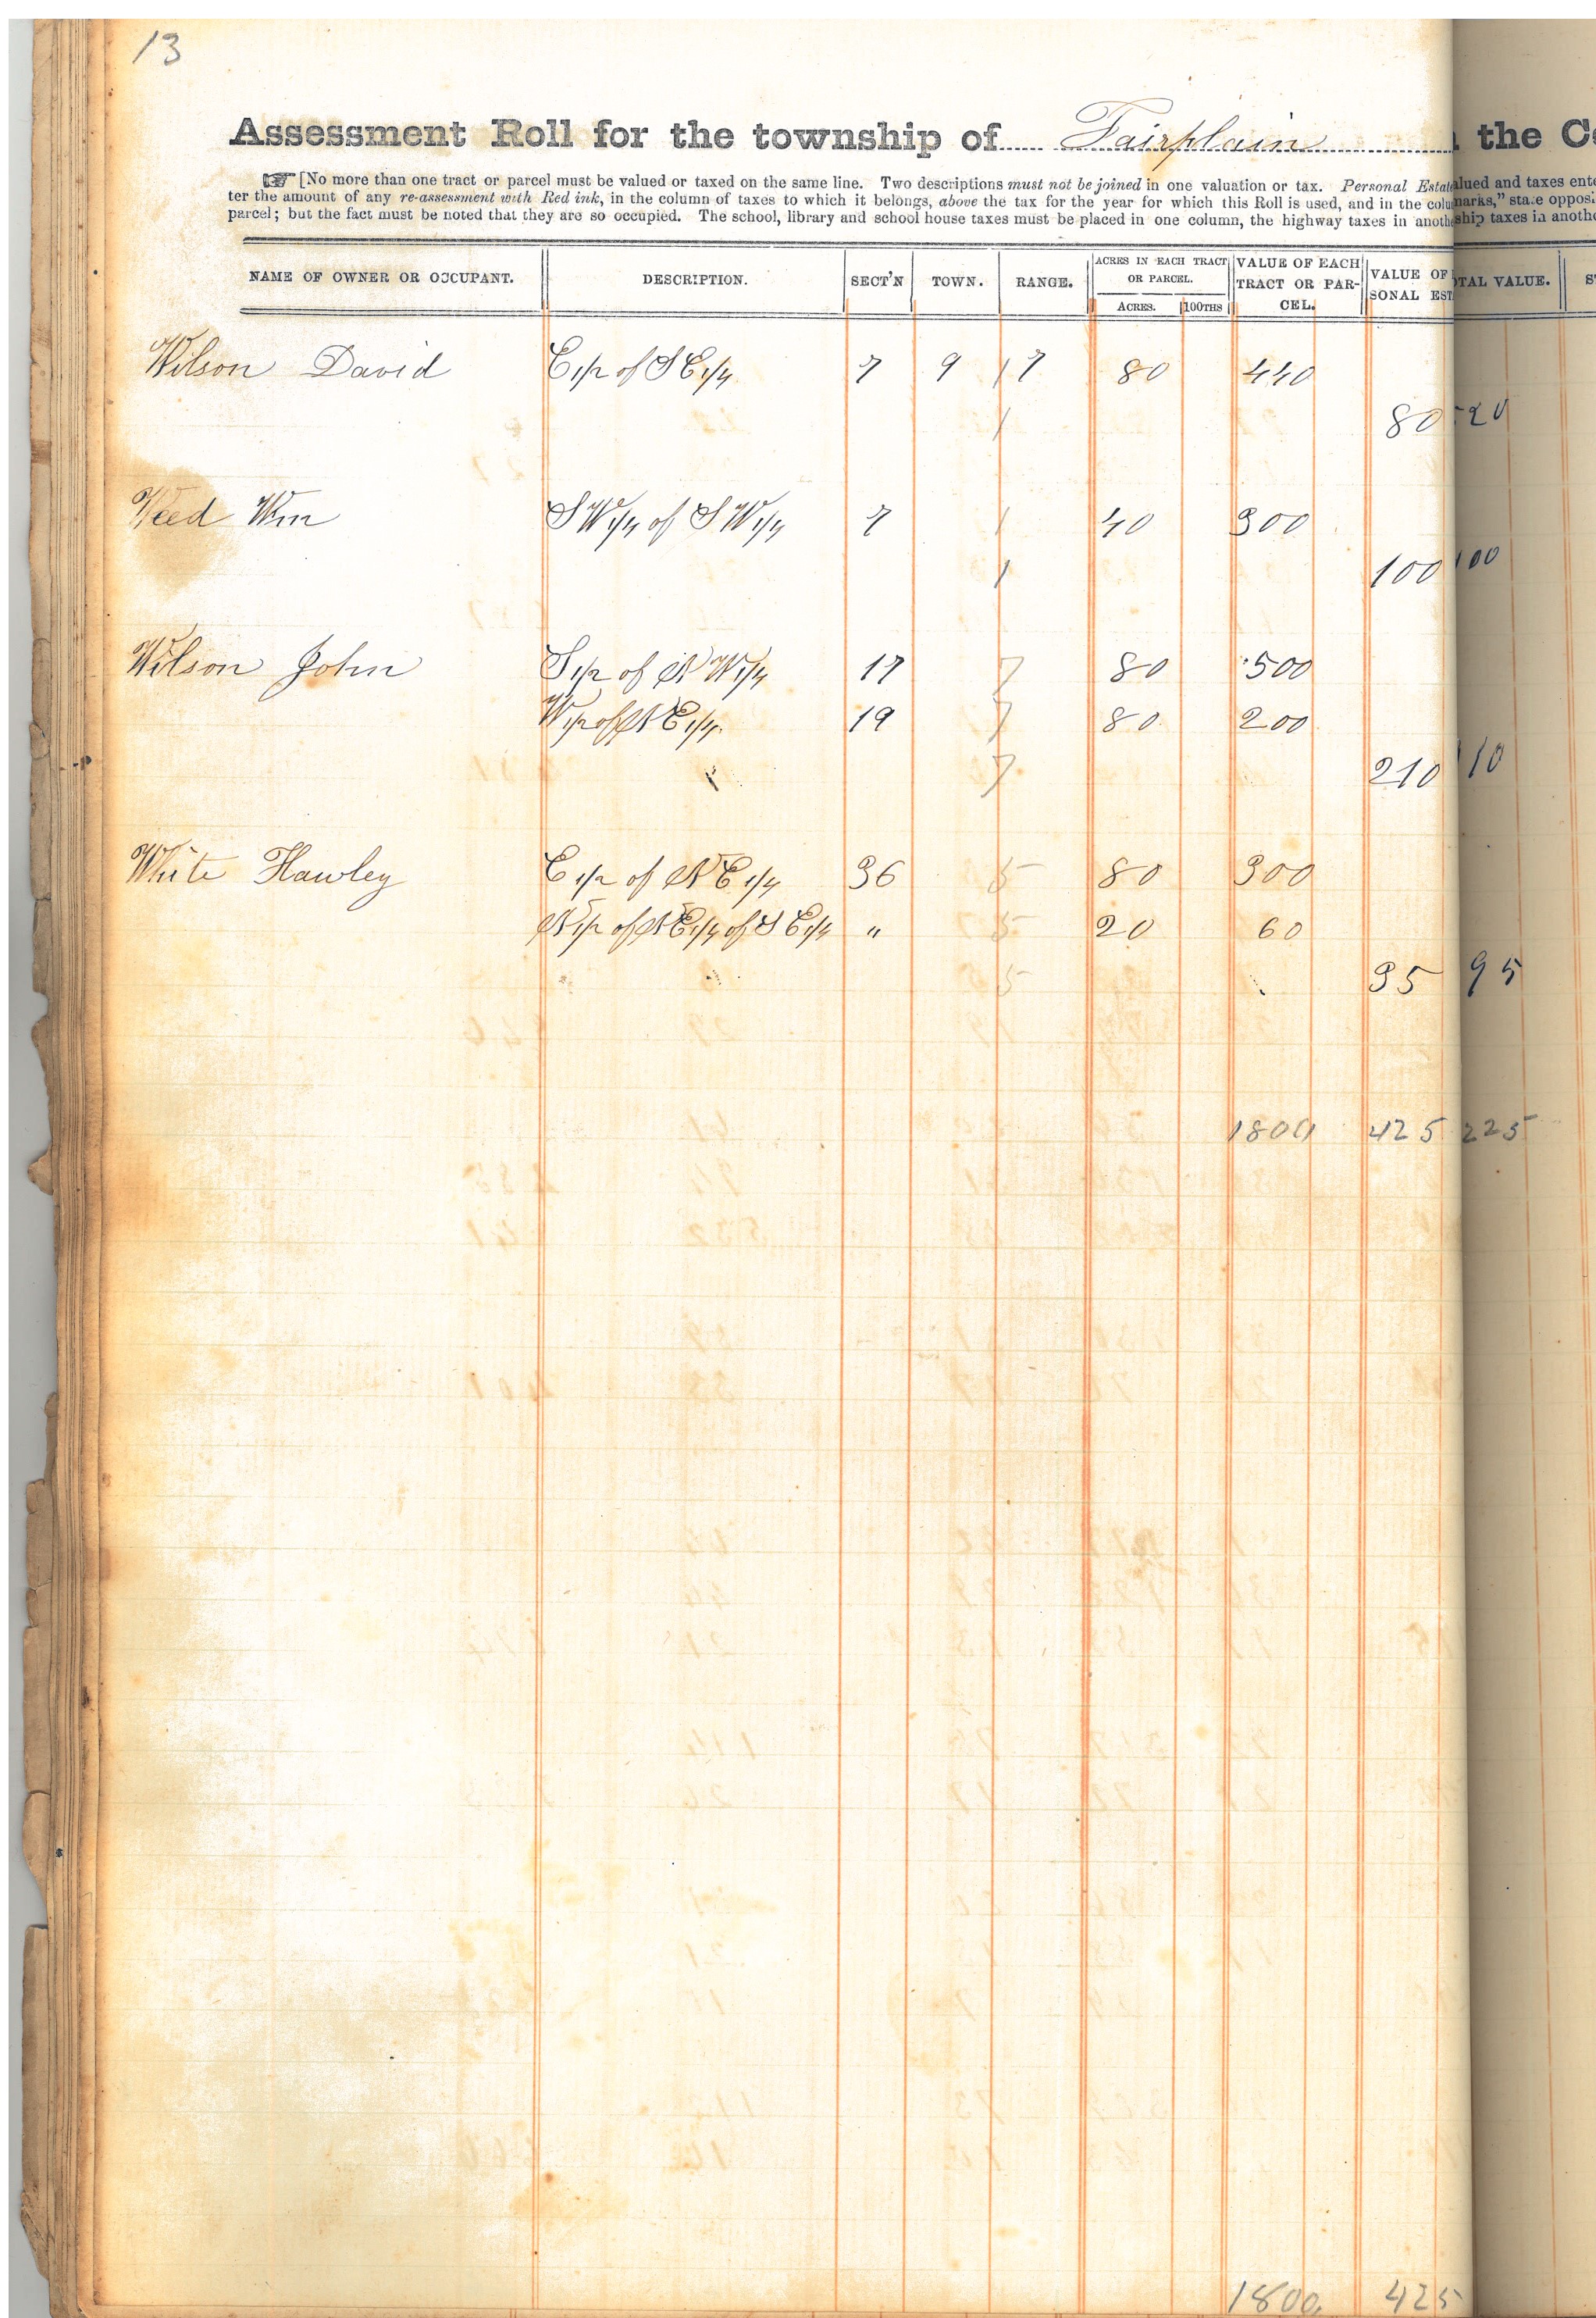 13
Assessment Roll for the township of Fairplain the Co
☞ [No more than one tract or parcel must be valued or taxed on the same line. Two descriptions must not be joined in one valuation or tax. Personal Estate lued and taxes ente
ter the amount of any re-assessment with Red ink, in the column of taxes to which it belongs, above the tax for the year for which this Roll is used, and in the colu marks," state opposi
parcel; but the fact must be noted that they are so occupied. The school, library and school house taxes must be placed in one column, the highway taxes in anothe ship taxes in anothe
NAME OF OWNER OR OCCUPANT. DESCRIPTION. SECT'N TOWN. RANGE. ACRES IN EACH TRACT OR PARCEL. ACRES. 100THS VALUE OF EACH TRACT OR PAR-CEL. VALUE OF SONAL EST OTAL VALUE.
Wilson David E 1/2 of S E 1/4 7 9 1 7 80 440
1 80 520
Weed Wm S W 1/4 of S W 1/4 7 1 40 300
1 100 100
Wilson John S 1/2 of N W 1/4 17 7 80 500
W 1/2 of N E 1/4 19 7 80 200
7 210 10
White Hawley E 1/2 of N E 1/4 36 5 80 300
N 1/2 of N E 1/4 of S E 1/4 " 5 20 60
5 35 95
1800 425 225
1800 425